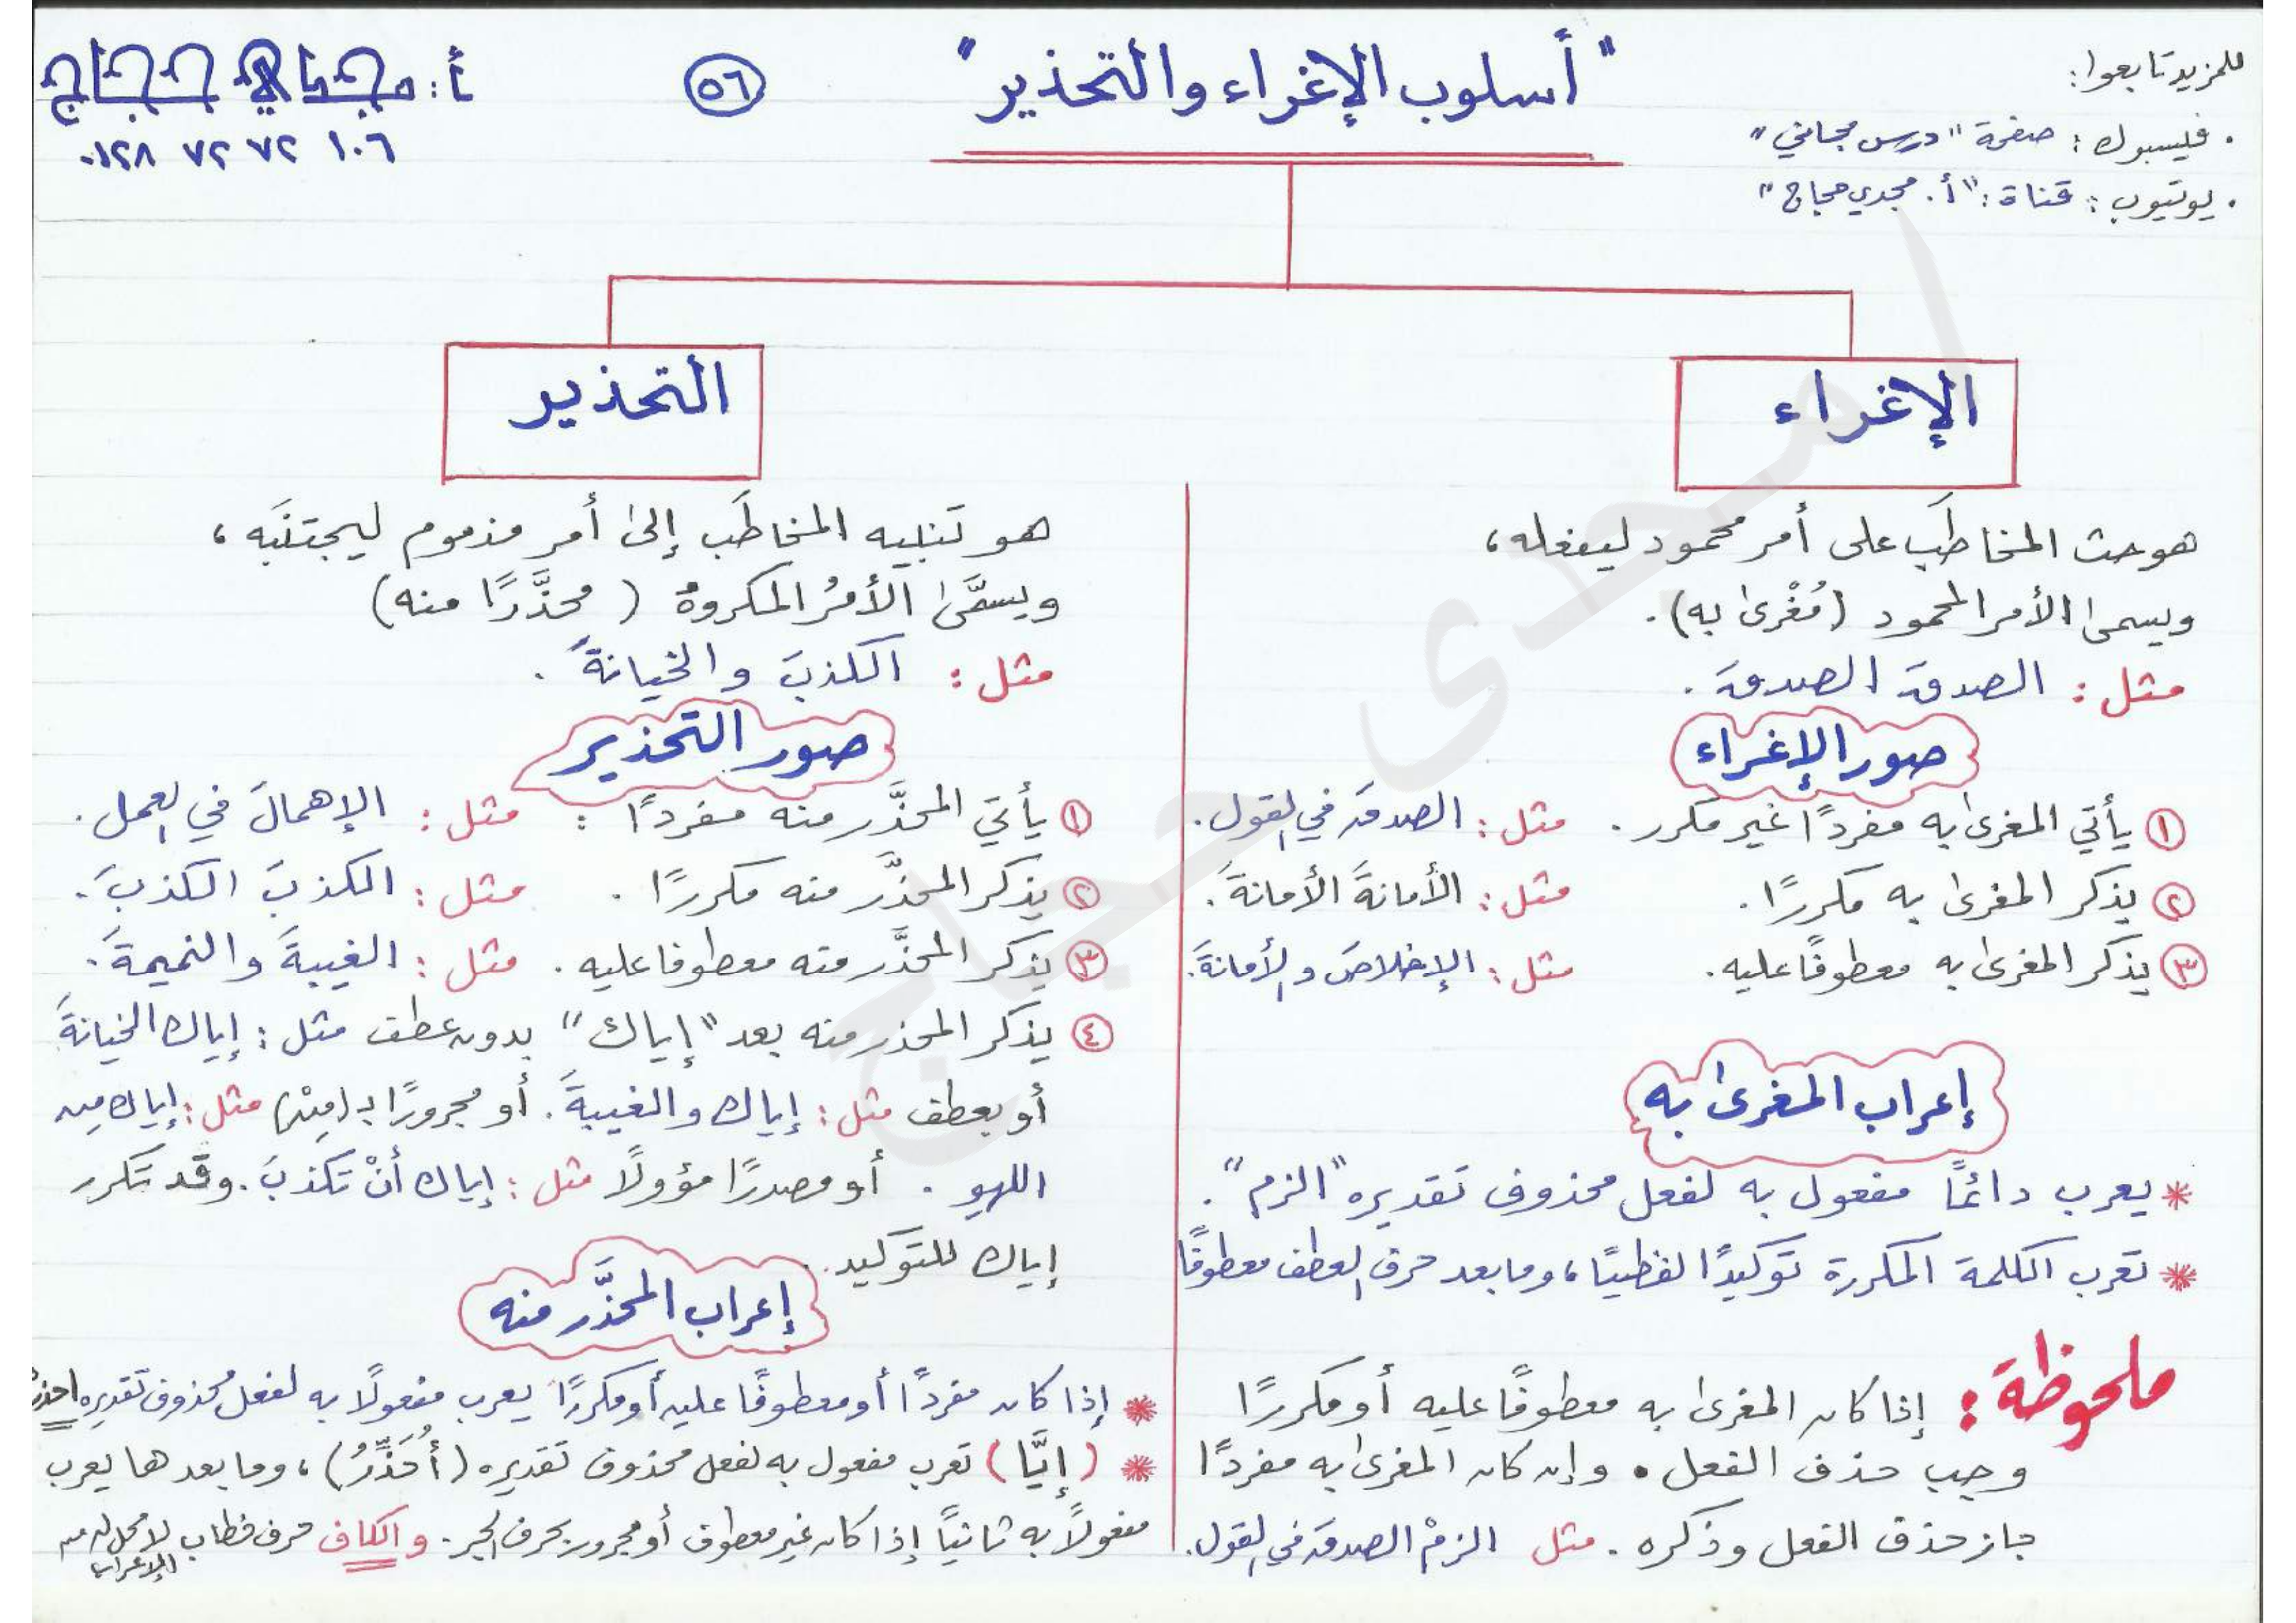 للمزيد تابعوا:
. فيسبوك : صفحة "درس مجاني"
. يوتيوب : قناة : "أ. مجدي حجاج"
"أسلوب الإغراء والتحذير"
٥٦
أ: مجدي حجاج
٠١٢٨ ٧٢ ٧٢ ١٠٦
الإغراء
هو حث المخاطَب على أمر محمود ليفعله،
ويسمى الأمر المحمود (مُغْرىٰ به).
مثل : الصدقَ الصدقَ .
صور الإغراء
١ يأتي المغرى به مفردًا غير مكرر . مثل : الصدقَ في القول.
٢ يذكر المغرىٰ به مكررًا . مثل : الأمانةَ الأمانةَ .
٣ يذكر المغرىٰ به معطوفًا عليه. مثل : الإخلاصَ والأمانةَ.
إعراب المغرىٰ به
* يعرب دائمًا مفعول به لفعل محذوف تقديره "الزم" .
* تعرب الكلمة المكررة توكيدًا لفظيًا ، وما بعد حرف العطف معطوفًا
ملحوظة : إذا كان المغرىٰ به معطوفًا عليه أو مكررًا
وجب حذف الفعل . وإن كان المغرىٰ به مفردًا
جاز حذف الفعل وذكره . مثل الزمْ الصدقَ في القول.
التحذير
هو تنبيه المخاطَب إلىٰ أمر مذموم ليجتنَبه ،
ويسمَّىٰ الأمرُ المكروهُ ( محذَّرًا منه )
مثل : الكذبَ والخيانةَ .
صور التحذير
١ يأتي المحذَّر منه مفردًا : مثل : الإهمالَ في العمل .
٢ يذكر المحذَّر منه مكررًا . مثل : الكذبَ الكذبَ .
٣ يذكر المحذَّر منه معطوفا عليه . مثل : الغيبةَ والنميمةَ .
٤ يذكر المحذر منه بعد "إياك" بدون عطف مثل : إياك الخيانةَ
أو بعطف مثل : إياك والغيبةَ . أو مجرورًا بـ (مِنْ) مثل : إياك من
اللهو . أو مصدرًا مؤولًا مثل : إياك أنْ تكذبَ . وقد تكرر
إياك للتوكيد .
إعراب المحذَّر منه
* إذا كان مفردًا أو معطوفًا عليه أو مكررًا يعرب مفعولًا به لفعل محذوف تقديره احذر
* (إيَّا) تعرب مفعول به لفعل محذوف تقديره (أُحَذِّرُ) ، وما بعدها يعرب
مفعولًا به ثانيًا إذا كان غير معطوف أو مجرور بحرف الجر . والكاف حرف خطاب لا محل له من
الإعراب
امجدى حجاج